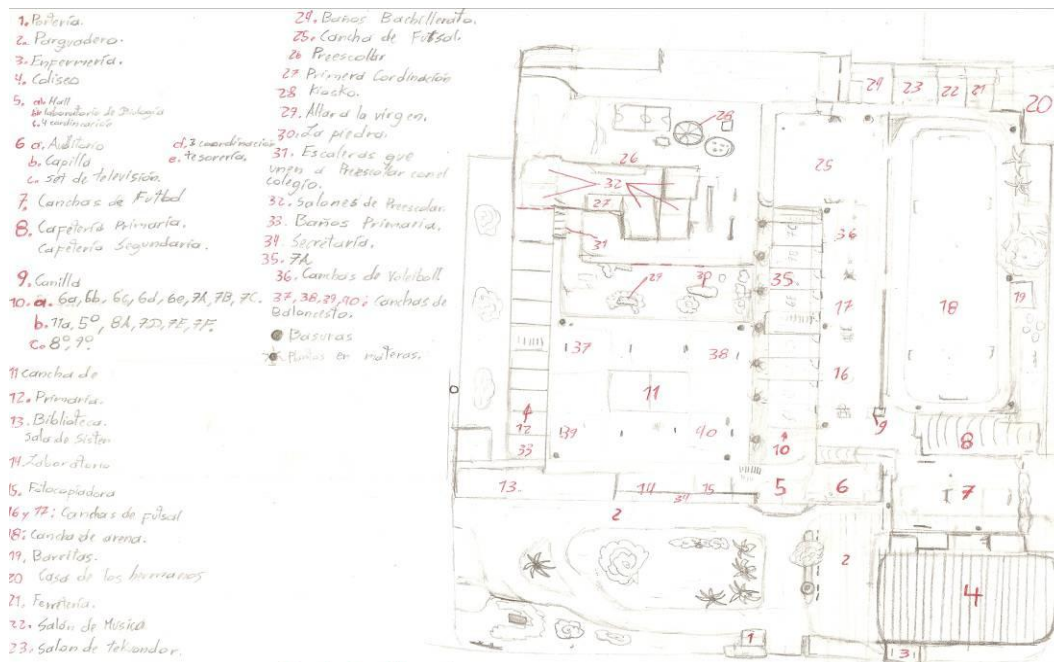 1. Portería.
2. Parquadero.
3. Enfermería.
4. Coliseo
5. a. Hall
b. laboratorio de Biología
c. 4 coordinación
6 a. Auditorio
b. Capilla
c. set de televisión.
d. 3 coordinación
e. tesorería.
7. Canchas de Futbol
8. Cafetería Primaria.
Cafetería Segundaria.
9. Canilla
10. a. 6a, 6b, 6c, 6d, 6e, 7A, 7B, 7C.
b. 11a, 5º, 8A, 7D, 7E, 7F.
c. 8º, 9º
11 cancha de
12. Primaria.
13. Biblioteca.
Sala de Sistem
14 Laboratorio
15. Fotocopiadora
16 y 17: Canchas de futsal
18: Cancha de arena.
19. Barettas.
20 Casa de los hermanos
21. Ferretería.
22. Salón de Musica
23. Salon de tekuondor.
24. Baños Bachillerato.
25. Cancha de Futsal.
26 Preescollar
27 Primera Cordinación
28 Kiosko.
29. Altar a la virgen.
30. La piedra.
31. Escaleras que
unen a Preescolar con el
colegio.
32. Salones de Preescolar.
33. Baños Primaria.
34. Secretaría.
35. 7A
36. Canchas de Voleiball
37, 38, 39, 40: Canchas de
Baloncesto.
Basuras
Plantas en materas.
29 23 22 21
20
28
25
26
32
27
31
36
29
30
35
17
18
19
37
38
16
11
9
12
39
40
10
8
33
13.
14
15
34
5
6
7
2
2
4
1
3